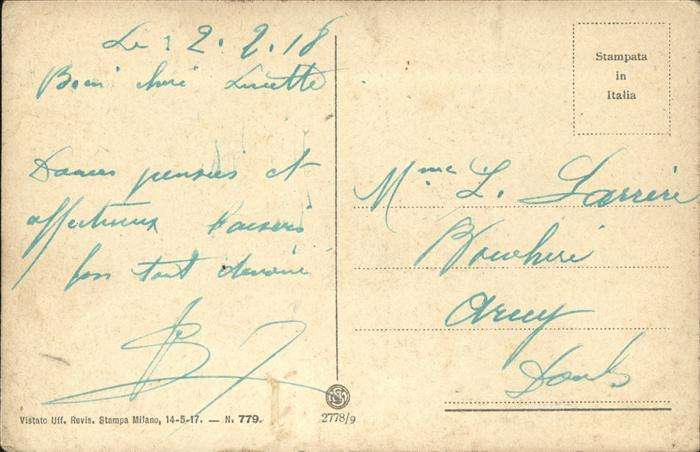 Le 2.2.18
Bien chère Lucette
Douces pensées et
affectueux baisers
ton tout dévoué
Stampata
in
Italia
Mme L.
Doubs
Vistato Uff. Revis. Stampa Milano, 14-5-17. — N. 779.
2778/9